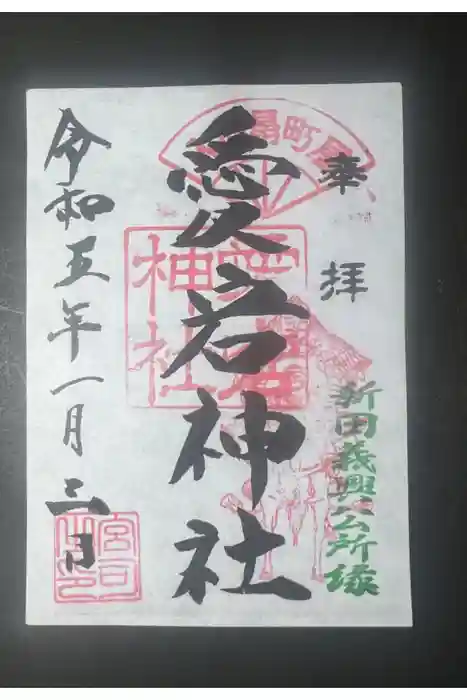 奉拝
新田義興公所縁
扇町屋
愛宕神社
愛宕神社
令和五年一月二日
宮司之印